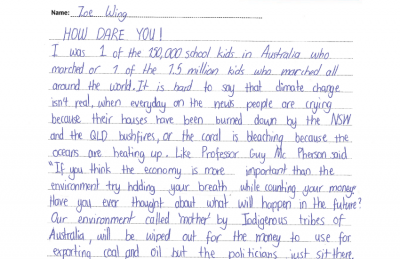 Name: Zoe Wing
HOW DARE YOU!
I was 1 of the 150,000 school kids in Australia who
marched or 1 of the 7.5 million kids who marched all
around the world. It is hard to say that climate change
isn't real, when everyday on the news people are crying
because their houses have been burned down by the NSW
and the QLD bushfires, or the coral is bleaching because the
oceans are heating up. Like Professor Guy Mc Pherson said
"If you think the economy is more important than the
environment try holding your breath while counting your money.
Have you ever thought about what will happen in the future?
Our environment called 'mother' by Indigerous tribes of
Australia, will be wiped out for the money to use for
exporting coal and oil but the politicians just sit there.